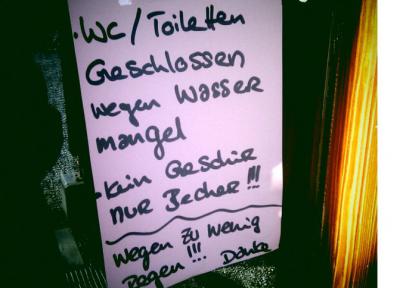 · WC / Toiletten
Geschlossen
wegen Wasser
mangel
- Kein Geschir
nur Becher !!!
wegen zu wenig
Regen !!! Danke